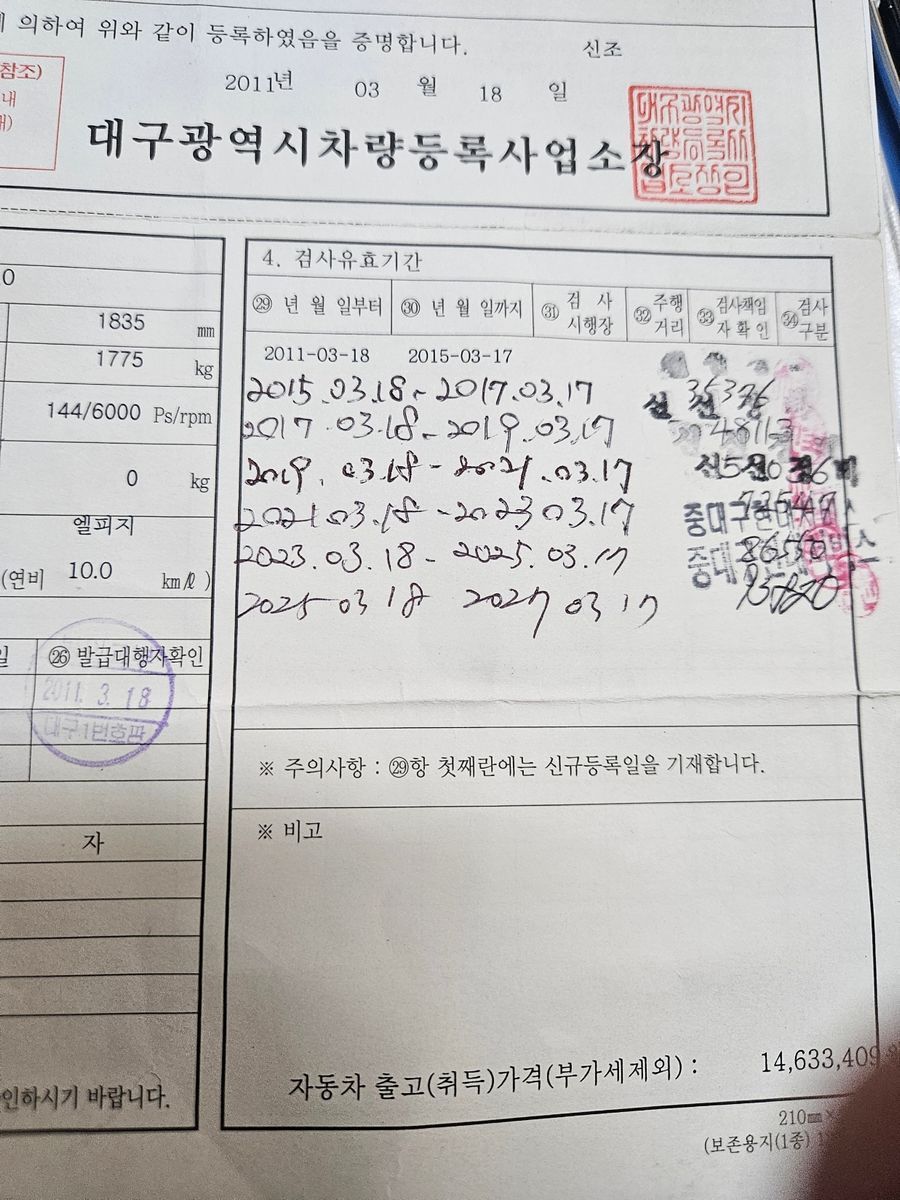 의하여 위와 같이 등록하였음을 증명합니다.
신조
참조)
2011년 03 월 18 일
대구광역시차량등록사업소장
4. 검사유효기간
㉙ 년 월 일부터 ㉚ 년 월 일까지 ㉛ 검 사 시행장 ㉜ 주행 거리 ㉝ 검사책임 자 확 인 ㉞ 검사 구분
2011-03-18 2015-03-17
2015.03.18 - 2017.03.17 35376
2017.03.18 - 2019.03.17 48113
2019.03.18 - 2021.03.17
2021.03.18 - 2023.03.17
2023.03.18 - 2025.03.17 86550
2025 03 18 2027 03 17
0
1835 mm
1775 kg
144/6000 Ps/rpm
0 kg
엘피지
(연비 10.0 km/ℓ)
일 ㉖ 발급대행자확인
2011. 3. 18
대구1번호판
자
인하시기 바랍니다.
※ 주의사항 : ㉙항 첫째란에는 신규등록일을 기재합니다.
※ 비고
자동차 출고(취득)가격(부가세제외) : 14,633,409
210㎜×
(보존용지(1종)